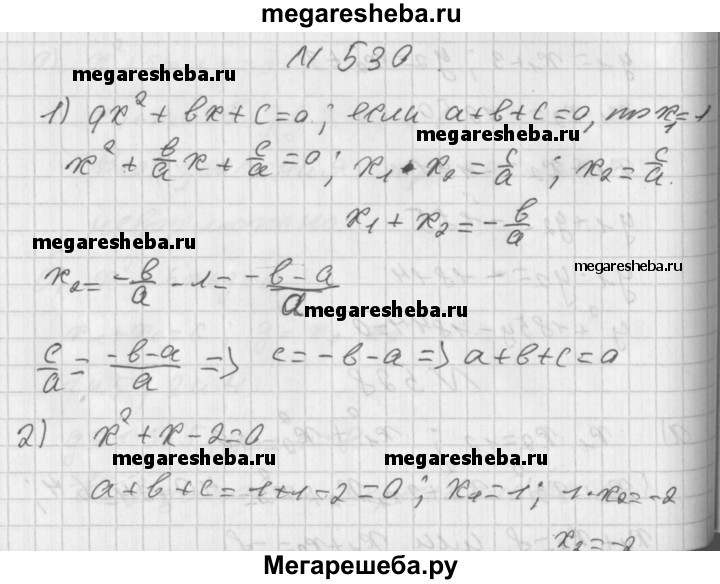 megaresheba.ru
N 530.
megaresheba.ru
1) ax² + bx + c = 0; если a+b+c=0, то x₁=1
megaresheba.ru
x² + b/a x + c/a = 0; x₁ • x₂ = c/a; x₂ = c/a.
x₁ + x₂ = - b/a
megaresheba.ru
megaresheba.ru
x₂ = - b/a - 1 = (-b-a)/a
megaresheba.ru
c/a = (-b-a)/a => c = -b-a => a+b+c=0
2) x² + x - 2 = 0
megaresheba.ru megaresheba.ru
a+b+c = 1+1-2 = 0; x₁ = 1; 1·x₂ = -2
x₂ = -2
Мегарешеба.ру